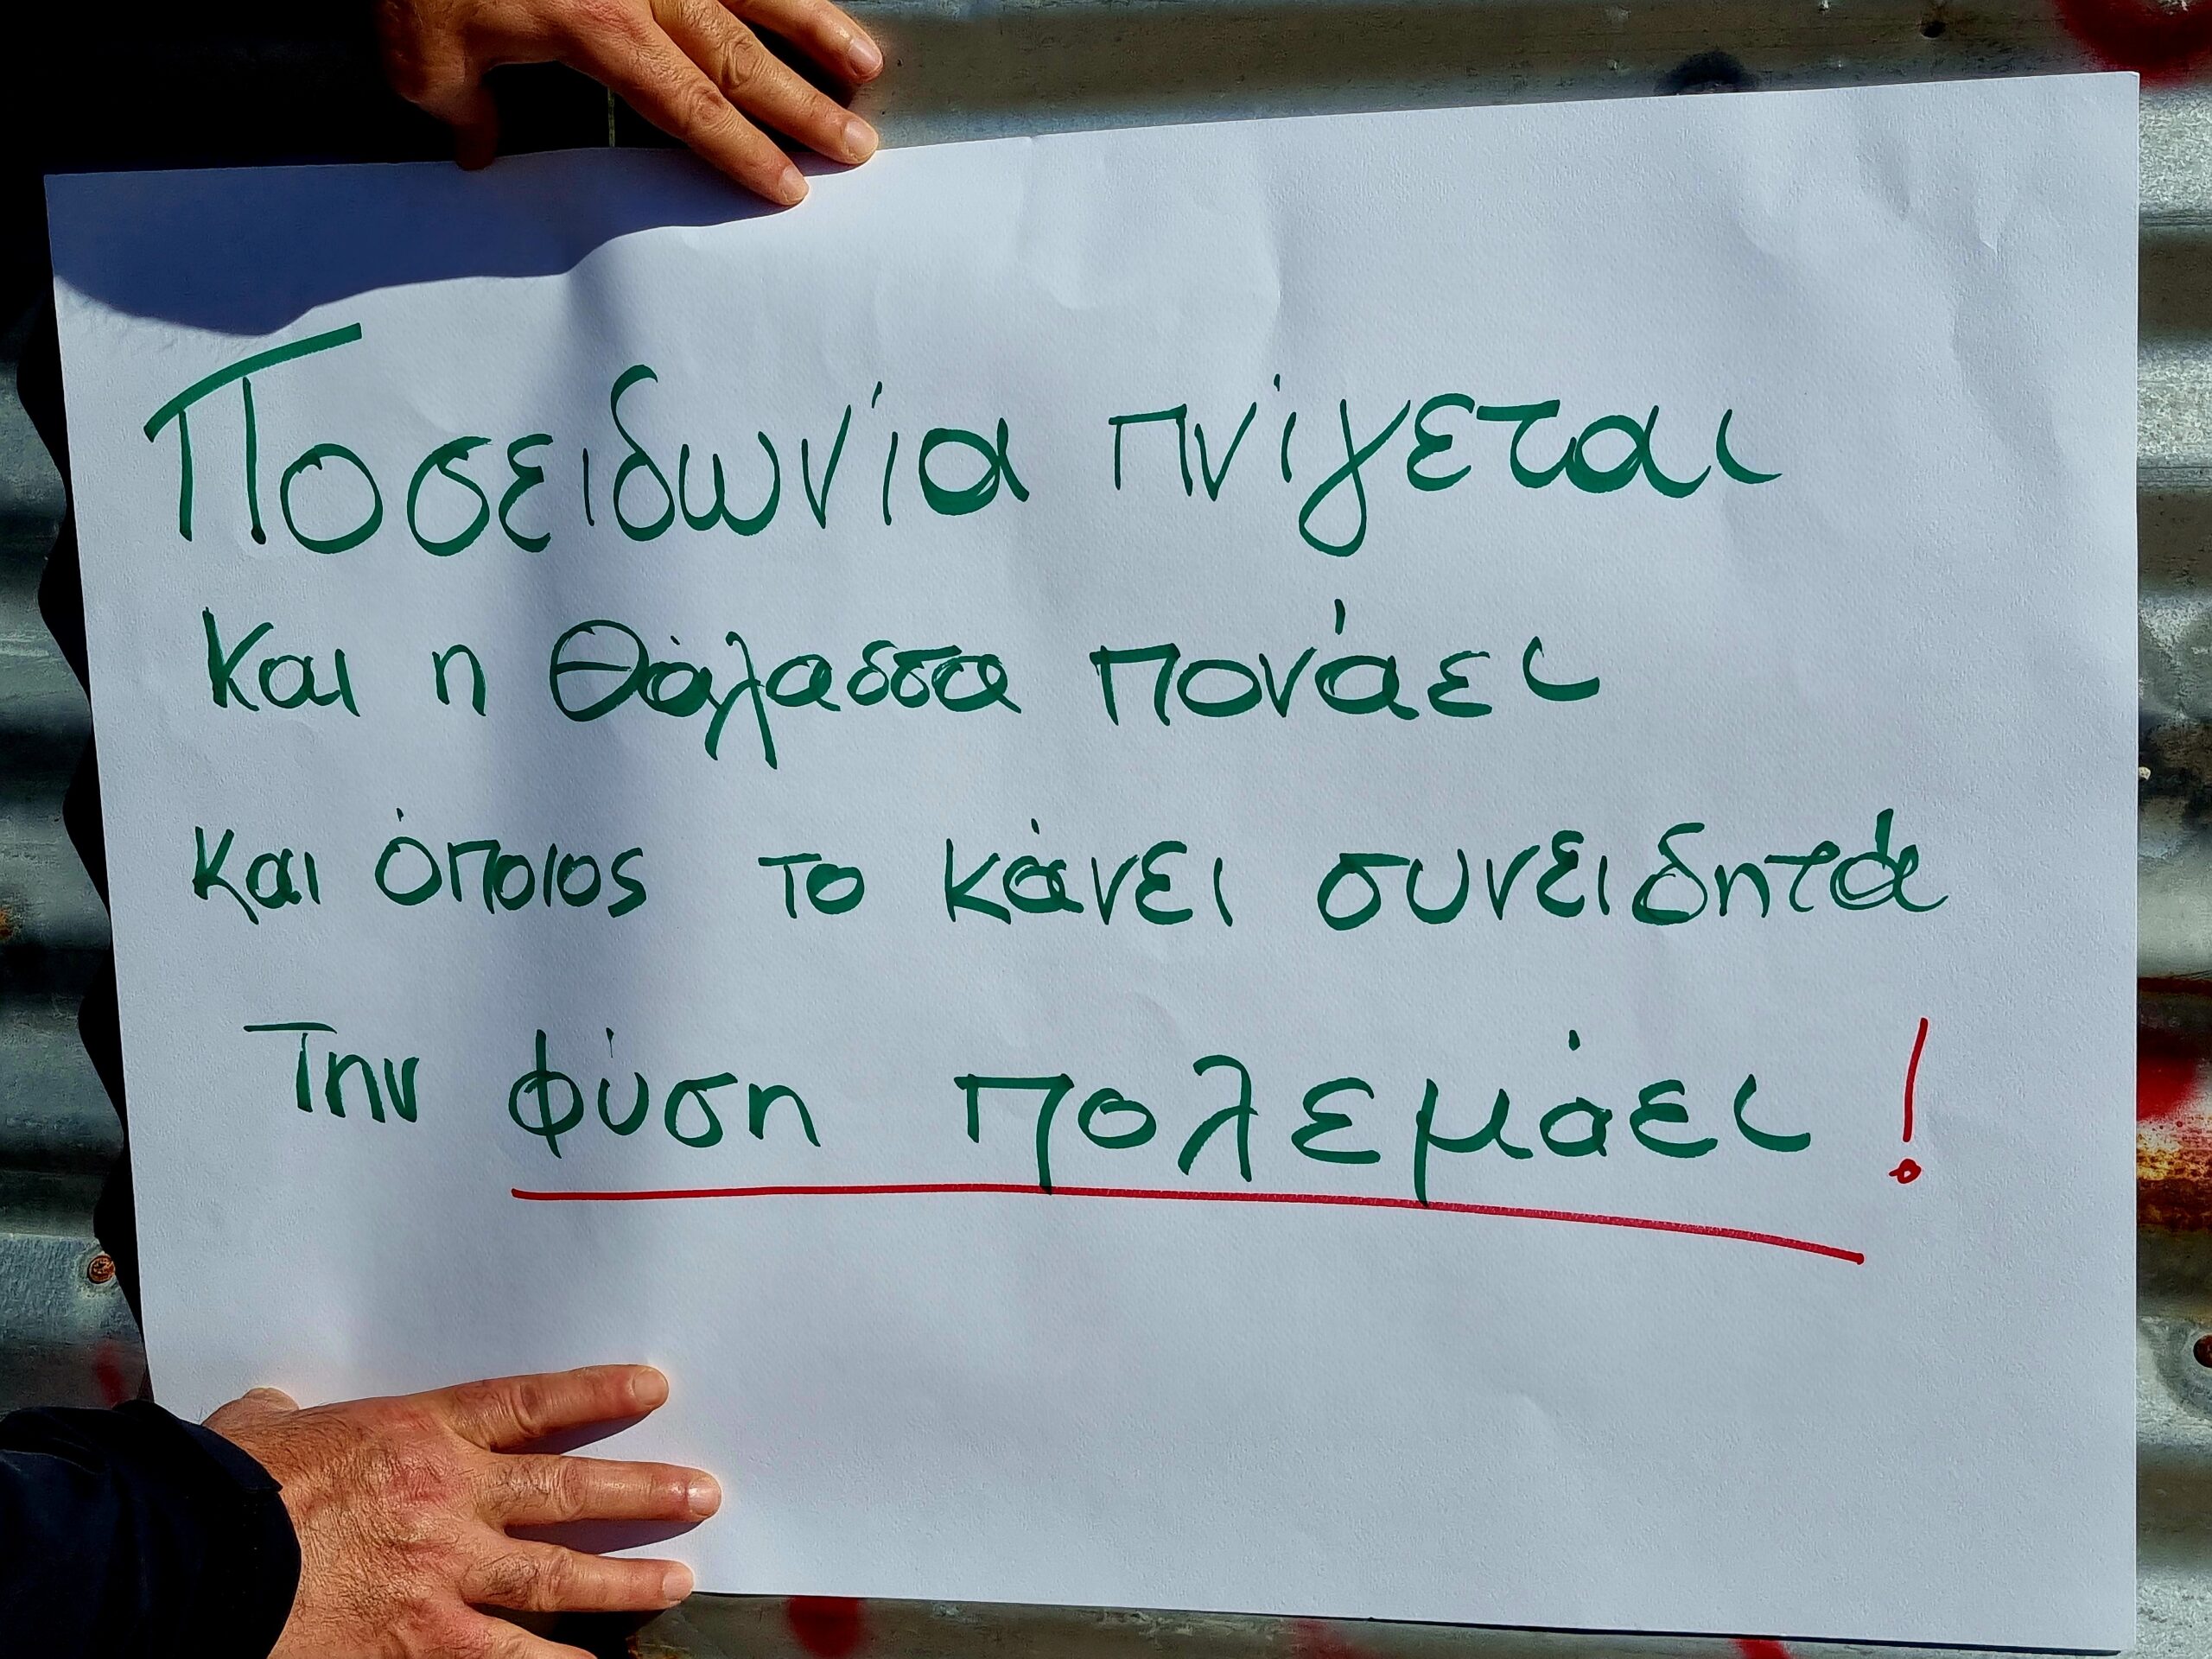 Ποσειδωνία πνίγεται
και η θάλασσα πονάει
και όποιος το κάνει συνειδητά
Την φύση πολεμάει!